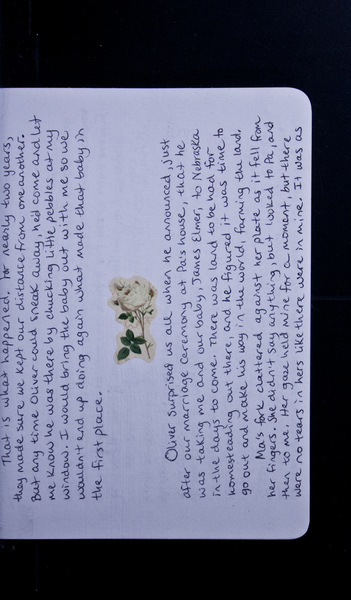 That is what happened. For nearly two years,
they made sure we kept our distance from one another.
But any time Oliver could sneak away, he'd come and let
me know he was there by chucking little pebbles at my
window. I would bring the baby out with me so we
wouldn't end up doing again what made that baby in
the first place.
Oliver surprised us all when he announced, just
after our marriage ceremony at Pa's house, that he
was taking me and our baby, James Elmer, to Nebraska
in the days to come. There was land to be had for
homesteading out there, and he figured it was time to
go out and make his way in the world, farming the land.
Ma's fork clattered against her plate as it fell from
her fingers. She didn't say anything, but looked to Pa, and
then to me. Her gaze held mine for a moment, but there
were no tears in hers like there were in mine. It was as